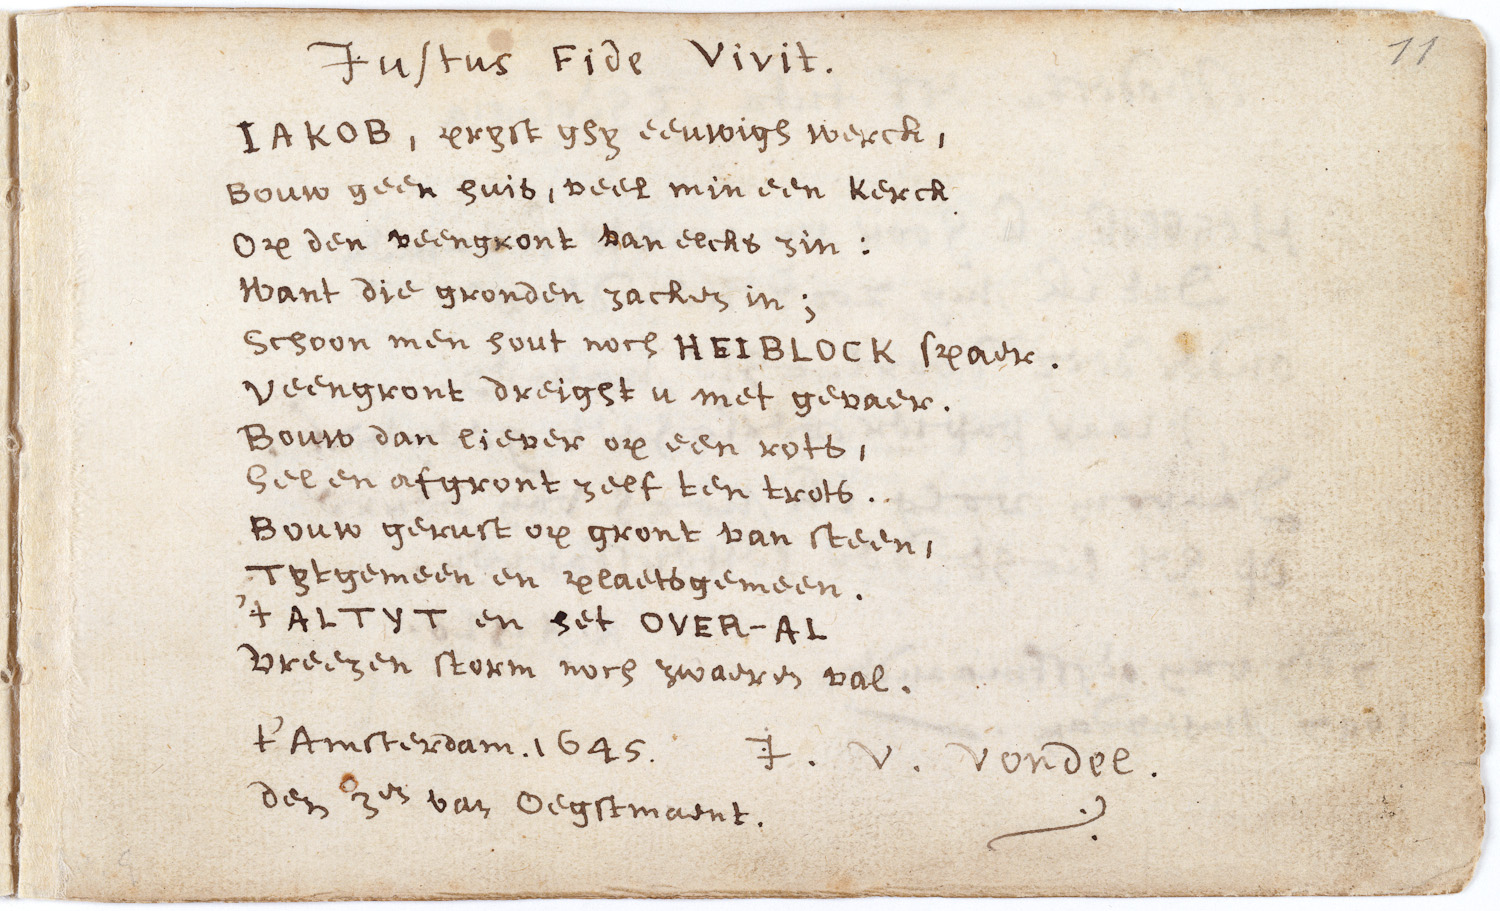 11
Justus Fide Vivit.
IAKOB, pryst ghy eeuwigh werck,
Bouw geen huis, veel min een kerck
Op den veengront van elcks zin:
Want die gronden zacken in;
Schoon men hout noch HEIBLOCK spaer.
Veengront dreight u met gevaer.
Bouw dan liever op een rots,
Hel en afgront zelf ten trots.
Bouw gerust op gront van steen,
Tytgemeen en plaetsgemeen.
't ALTYT en het OVER-AL
Vreezen storm noch zwaeren val.
t'Amsterdam. 1645.
J. V. Vondel.
den 3en van Oegstmaent.